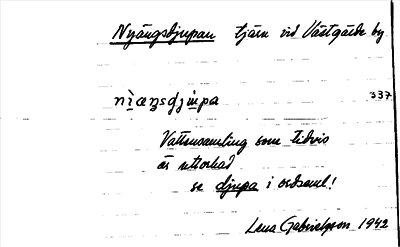 Nyängsdjupan tjärn vid Västgärde by
nìæŋsdjùpa 337
Vattensamling som tidvis
är uttorkad
se djupa i ordsaml!
Lena Gabrielsson 1942